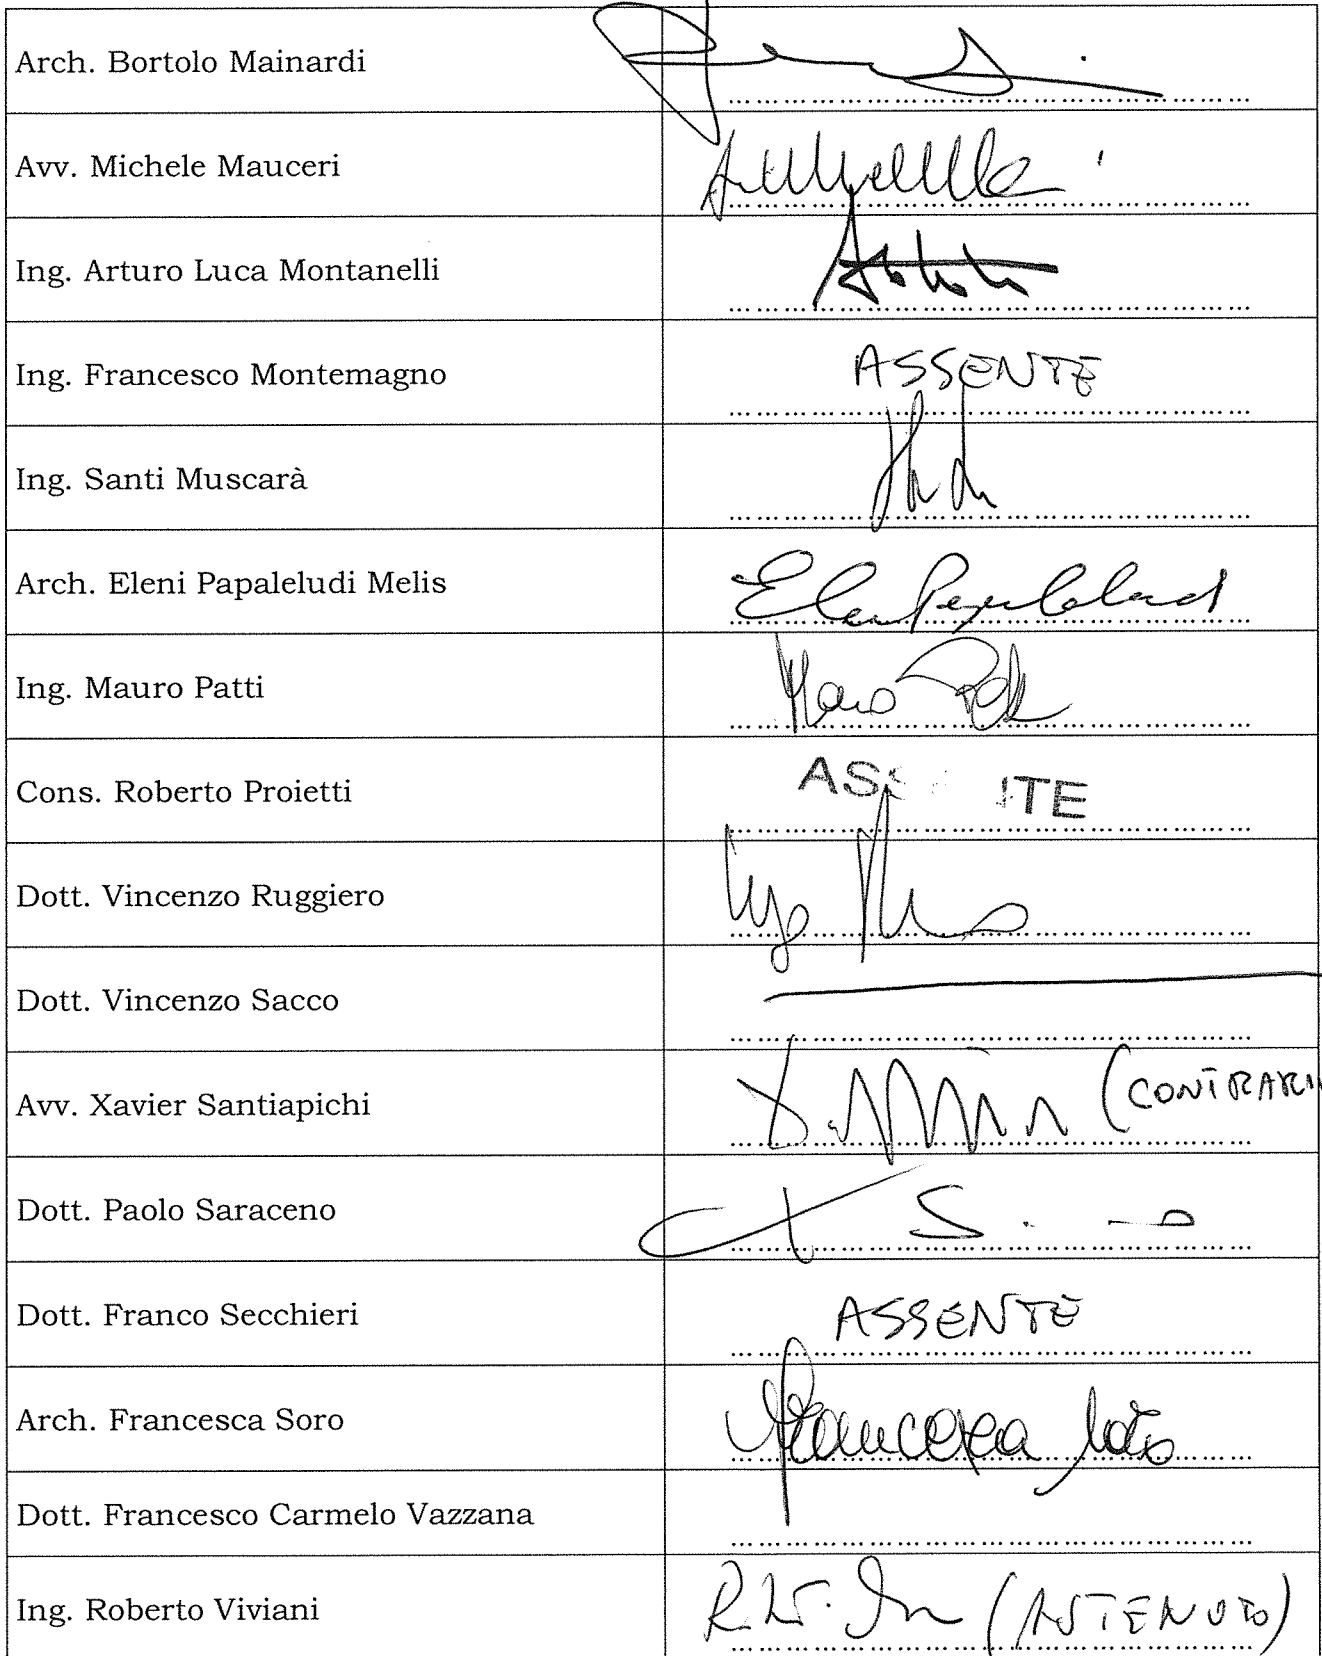 Arch. Bortolo Mainardi
Avv. Michele Mauceri
Ing. Arturo Luca Montanelli
Ing. Francesco Montemagno ASSENTE
Ing. Santi Muscarà
Arch. Eleni Papaleludi Melis
Ing. Mauro Patti Mauro Patti
Cons. Roberto Proietti
Dott. Vincenzo Ruggiero
Dott. Vincenzo Sacco
Avv. Xavier Santiapichi (CONTRARI
Dott. Paolo Saraceno
Dott. Franco Secchieri ASSENTE
Arch. Francesca Soro Francesca Soro
Dott. Francesco Carmelo Vazzana
Ing. Roberto Viviani (ASTENUTO)